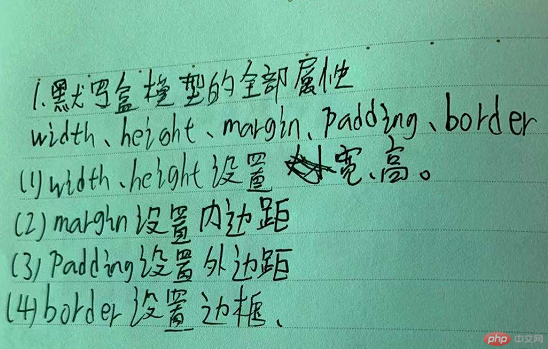 1.默写盒模型的全部属性
width、height、margin、padding、border
(1)width、height设置宽、高。
(2)margin设置内边距
(3)Padding设置外边距
(4)border设置边框、
php 中文网